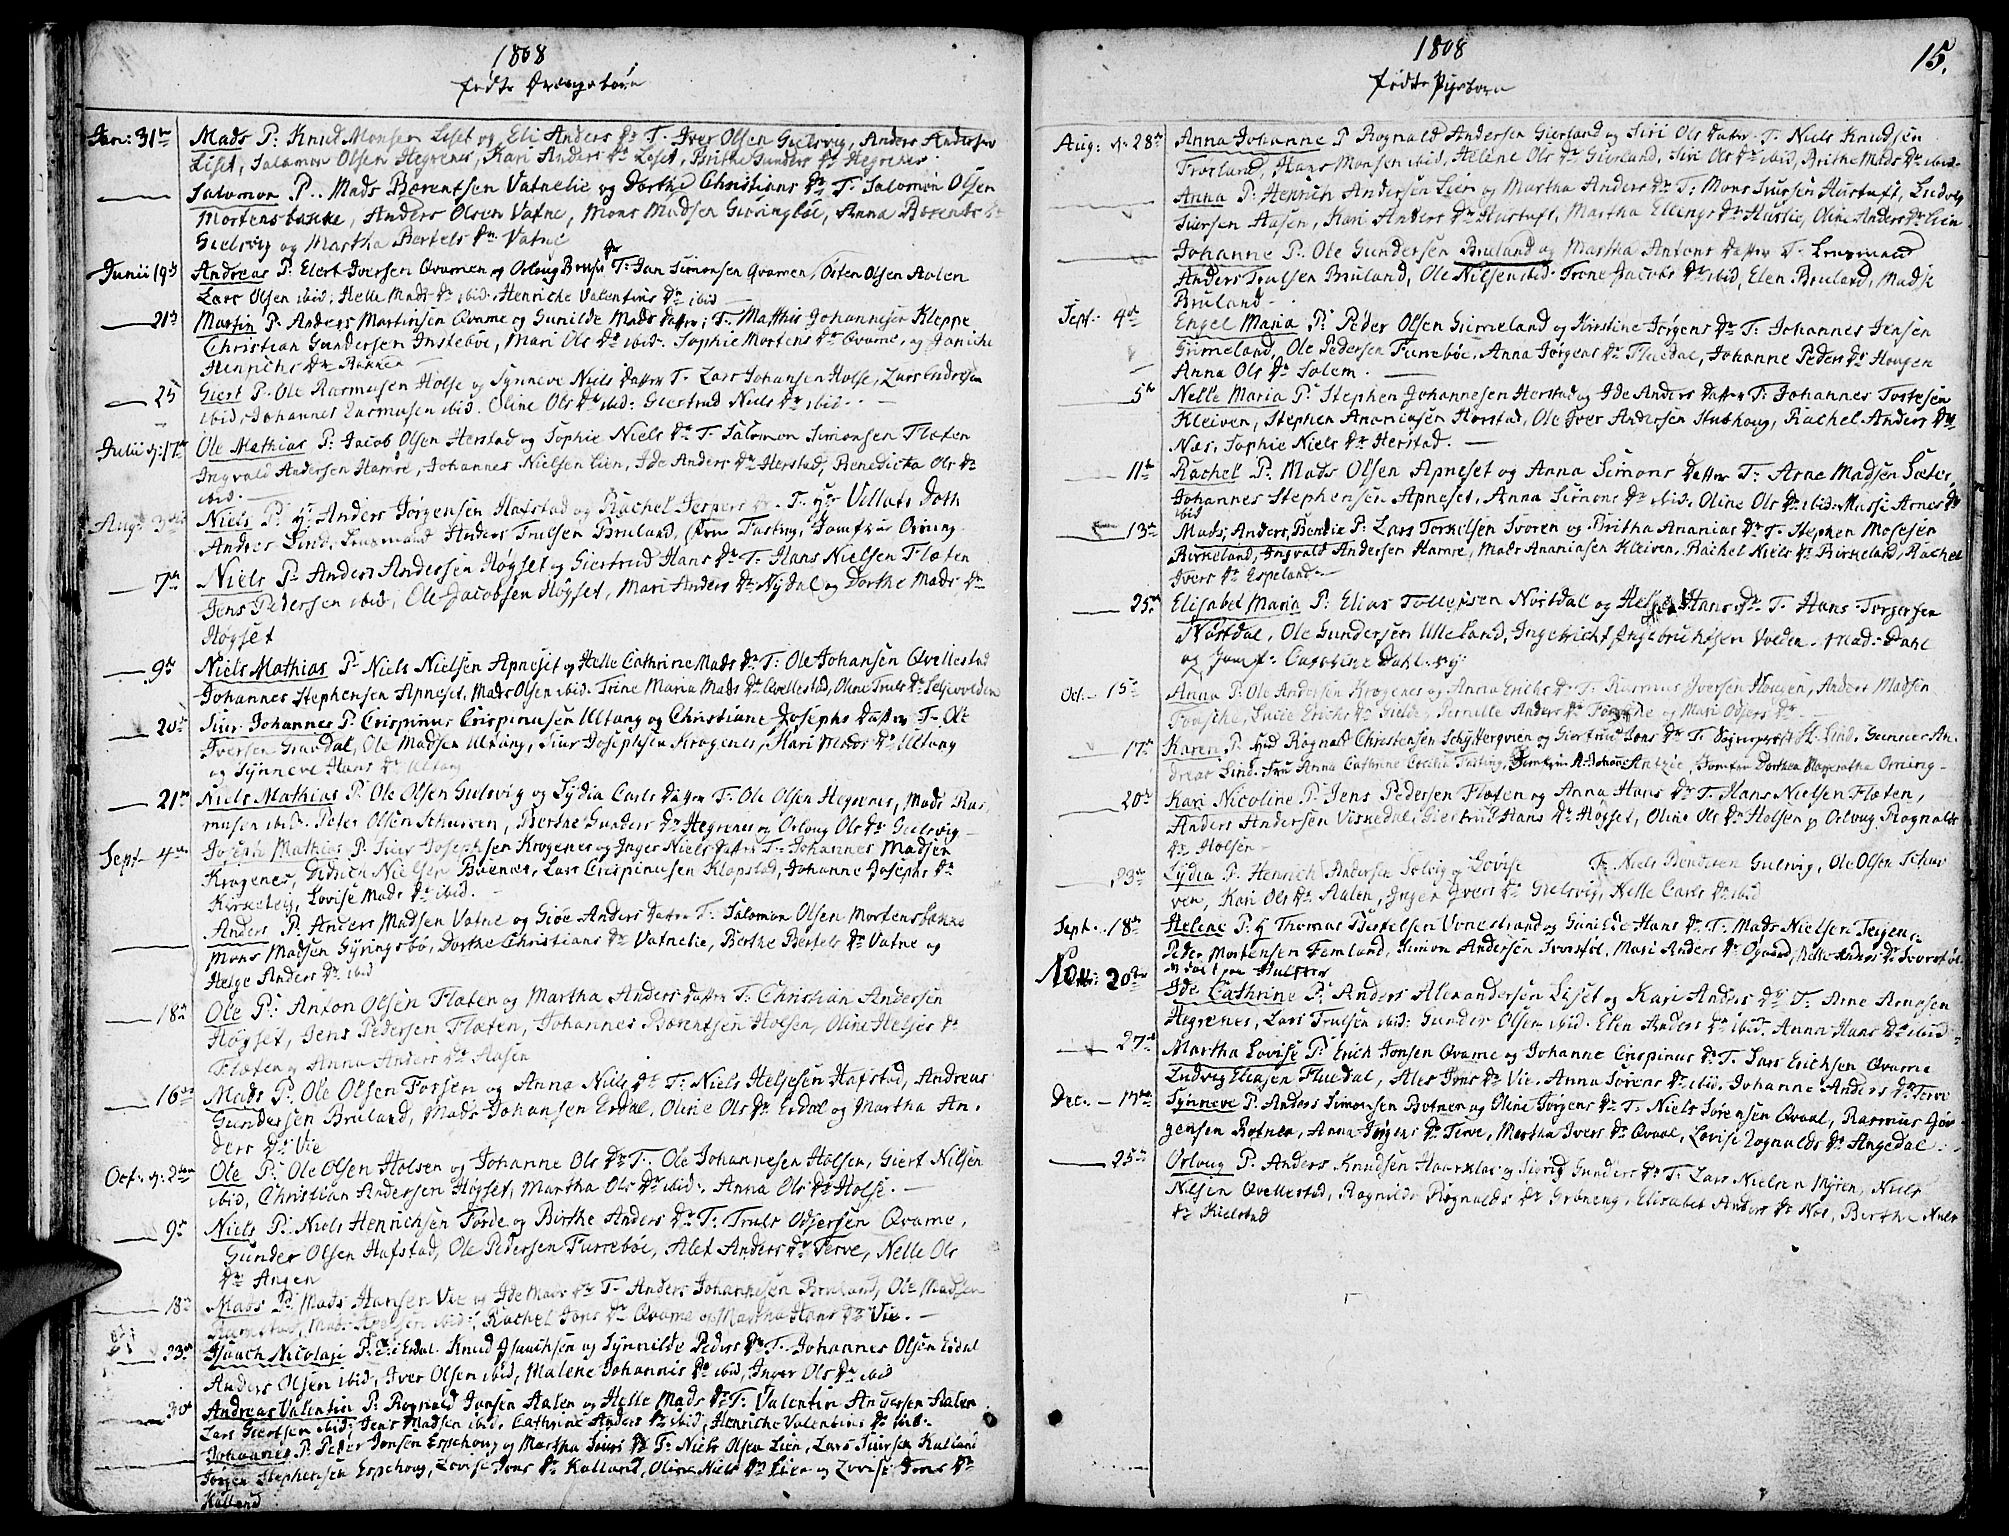 1808
fødte Drængebørn
Jan: 31te Mads P: Knud Monsen Liset og Eli Anders Dr T. Iver Olsen Gielsvig, Anders Andersen
Liset, Salamon Olsen Hegrenes, Kari Anders Dr Liset, Brithe Gunders Dr Hegrenes.
Salomon P. Mads Bærentsen Vatnelie og Dorthe Christians Dr T. Salomon Olsen
Mortensbakke, Anders Olsen Vatne, Mons Madsen Giøringbøe, Anna Bærents Dr
Gielsvig og Martha Bertels Dr Vatne
Junii 19de Andreas P: Elert Iversen Qvamen og Orloug Dr T: Jan Simonsen Qvamen, Osten Olsen Aalen
Lars Olsen ibid, Helle Mads Dr ibid. Henriche Valentins Dr ibid
21de Martin P: Anders Martinsen Qvame og Gunilde Mads Datter; T. Matthis Johannesen Kleppe
Christian Gundersen Instebøe, Mari Ols Dr ibid. Sophie Mortens Dr Qvame, og Janiche
Henrichs Dr Bakken
25 Giert P. Ole Rasmusen Holse og Synneve Niels Datter T. Lars Johansen Holse, Lars Endresen
ibid, Johannes Rasmusen ibid. Oline Ols Dr ibid. Giertrud Niels Dr ibid.
Julii d: 17de Ole Mathias P: Jacob Olsen Herstad og Sophie Niels Dr T. Salomon Simonsen Flæten
Ingvald Andersen Hamre, Johannes Nielsen Lien, Ide Anders Dr Herstad, Benedicta Ols Dr
ibid.
Aug: 3die Niels P: Hr Anders Jørgensen Hafstad og Rachel Jespers Dr. T. Hr Villats Doth
Andreas Lind, Lensmand Anders Trulsen Bruland, Frue Tusting, Jomfrue Orning
7de Niels P: Anders Andersen Høgset og Giertrud Hans Dr T. Hans Nielsen Flæten
Jens Pedersen ibid, Ole Jacobsen Høgset, Mari Anders Dr Nydal og Dorthe Mads Dr
Høgset
9de Niels Mathias P. Niels Nielsen Apneset og Helle Cathrine Mads Dr T: Ole Johansen Qvellestad
Johannes Stephensen Apneset, Mads Olsen ibid. Trine Maria Mads Dr Qvellestad, Oline Truls Dr Seljevolden
20de Siur Johannes P. Crispinus Crispinusen Ultang og Christiane Josephs Datter T. Ole
Iversen Gravdal, Ole Madsen Ultang, Siur Josephsen Krogenes, Kari Mads Dr Ultang
og Synneve Hans Dr Ultang
21de Niels Mathias P. Ole Olsen Gulsvig og Lydia Carls Datter T. Ole Olsen Hegrenes, Mads Ras-
musen ibid. Peter Olsen Schurven, Berthe Gunders Dr Hegrenes og Orloug Ols Dr Gielsvig
Sept. 4de Joseph Mathias P. Siur Josephsen Krogenes og Inger Niels Datter T. Johannes Madsen
Krogenes, Gidion Nielsen Buenes, Lars Crispinusen Klopstad, Johanne Josephs Dr
Kirkebye, Lovise Mads Dr ibid.
Anders P. Anders Madsen Vatne og Giøe Anders Datter T. Salomon Olsen Mortensbakke
Mons Madsen Gyringsbø, Dorthe Christians Dr Vatnelie, Berthe Bertels Dr Vatne og
Helge Anders Dr ibid
18de Ole P: Anton Olsen Flæten og Martha Anders Datter T. Christian Andersen
Høgset, Jens Pedersen Flæten, Johannes Bærentsen Holsen, Oline Heljes Dr
Flæten og Anna Anders Dr Aasen
16de Mads P. Ole Olsen Forsen og Anna Niels Dr T: Niels Heljesen Hafstad, Andreas
Gundersen Bruland, Mads Johansen Erdal, Oline Ols Dr Erdal og Martha An-
ders Dr Vie
Oct: d: 2den Ole P: Ole Olsen Holsen og Johanne Ols Dr T. Ole Johannesen Holsen, Giert Nilsen
ibid, Christian Andersen Høgset, Martha Ols Dr ibid. Anna Ols Dr Holse.
9de Niels P. Niels Henrichsen Førde og Birthe Anders Dr T. Truls Odjersen Qvame,
Gunder Olsen Hafstad, Ole Pedersen Furrebøe, Alet Anders Dr Terve, Nelle Ols
Dr Angen
18de Mads P. Mads Hansen Vie og Ide Mads Dr T. Anders Johannesen Bruland, Ole Madsen
Ramstad, ibid, Rachel Jons Dr Qvame og Martha Hans Dr Vie.
23de Isaach Nicolaji P. Erdal. Knud Isaachsen og Synnilde Peders Dr T. Johannes Olsen Erdal
Anders Olsen ibid, Iver Olsen ibid, Malene Johannis Dr ibid, Inger Ols Dr ibid
30te Andreas Valentin P. Rognald Jonsen Aalen og Helle Mads Dr T. Valentin Andersen Aalen
Lars Giertsen ibid, Jens Madsen ibid, Cathrine Anders Dr ibid, Henriche Valentins Dr ibid.
Johannes P. Peder Jonsen Erpehoug og Martha Siurs Dr T. Niels Olsen Lien, Lars Siursen Kalland
Jørgen Stephensen Erpehoug, Lovise Jons Dr Kalland, Oline Niels Dr Lien og Lovise Jons Dr
Kalland
1808
15.
fødte Pigebørn
Aug: d. 28de Anna Johanne P Rognald Andersen Gierland og Siri Ols Datter T. Niels Knudsen
Frøsland, Hans Monsen ibid, Helene Ols Dr Gierland, Siri Ols Dr ibid, Brithe Mads Dr ibid.
Anna P: Henrich Andersen Lien og Martha Anders Dr T: Mons Siursen Hustuft, Ludvig
Siursen Aasen, Kari Anders Dr Hustuft, Martha Ellings Dr Huslie, Oline Anders Dr Lien
Johanne P. Ole Gundersen Bruland og Martha Antons Datter T. Lensmand
Anders Trulsen Bruland, Ole Nilsen ibid. Trone Jacobs Dr ibid, Elen Bruland, Madse
Bruland.
Sept. 4de Engel Maria P. Peder Olsen Grimeland og Kirstine Jørgens Dr T: Johannes Jensen
Grimeland, Ole Pedersen Furrebøe, Anna Jørgens Dr Fluedal, Johanne Peders Dr Hougen
Anna Ols Dr Solem.
5te Nelle Maria P: Stephen Johannesen Herstad og Ide Anders Datter T: Johannes Tostesen
Kleiven, Stephen Ananiasen Herstad, Ole Iver Andersen Stubhoug, Rachel Anders Dr
Næs, Sophie Niels Dr Herstad.
11te Rachel P. Mads Olsen Apneset og Anna Simons Datter T: Arne Madsen Sæter,
Johannes Stephensen Apneset, Anna Simons Dr ibid. Oline Ols Dr ibid. Masse Arnes Dr
ibid
13de Mads, Anders, Bendie P: Lars Torkilsen Svoren og Britha Ananias Dr T. Stephen Mosesen
Birkeland, Ingvald Andersen Hamre, Mads Ananiasen Kleiven, Rachel Niels Dr Birkeland, Rachel
Ivers Dr Espeland.
25de Elisabet Maria P: Elias Tollefsen Nøstdal og Hans Dr T. Hans Torgersen
Nøstdal, Ole Gundersen Ulleland, Ingebricht Ingebrichtsen Volden. Mad. Dahl
og Jomf: Caroline Dahl.
Oct. 15de Anna P. Ole Andersen Krogenes og Anna Erichs Dr T. Rasmus Iversen Hougen, Anders Madsen
Fossehe, Lucie Erichs Dr Gielde, Pernille Anders Dr og Mari Odjers Dr
17de Karen P. Rognald Christensen Schytterqvien og Giertrud Jons Dr T. Lind. Gunner An-
dreas Lind. Fru Anna Cathrine Cecilia Tusting, Jomfrue Dorthea Orning
20de Kari Nicoline P. Jens Pedersen Flæten og Anna Hans Dr T. Hans Nielsen Flæten,
Anders Andersen Viskedal, Giertrud Hans Dr Høgset, Oline Ols Dr Holsen og Orloug Rognalds
Dr Holsen
23de Lydia P. Henrich Andersen Solvig og Lovise T. Niels Bendixen Gulsvig, Ole Olsen Schur
ven, Kari Ols Dr Aalen, Inger Ivers Dr Gielsvig, Nelle Carls Dr ibid
Sept. 18de Helene P. Thomas Vonestrand og Gunilde Hans Dr T. Mads Nielsen Teigen
Peder Mortensen Femland, Simon Andersen Svorstøl, Mari Anders Dr, Nelle Anders Dr Svorstøl
Nov: 20de Ide Cathrine P. Anders Alexandersen Liset og Kari Anders Dr T. Arne Arnesen
Hegrenes, Lars Trulsen ibid: Gunder Olsen ibid. Elen Anders Dr ibid. Anna Hans Dr ibid
27de Martha Lovise P: Erich Jonsen Qvame og Johanne Crispinus Dr T. Lars Erichsen Qvame
Ludvig Eliasen Fluedal, Alet Jons Dr Vie. Anna Sørens Dr ibid. Johanne Anders Dr Terve
Dec. 17de Synneve P. Anders Simonsen Botnen og Oline Jørgens Dr T. Niels Sørensen Qvaal, Rasmus Jør-
gensen Botnen, Anna Jørgens Dr Terve, Martha Ivers Dr Qvaal, Lovise Rognalds Dr Angedal.
25de Orloug P. Anders Knudsen Haarklas og Sigrid Gunders Dr T. Lars Nielsen Myren, Niels
Nilsen Qvellestad, Rognilde Rognalds Dr Grøneng, Elisabet Anders Dr Nos, Berthe Niels
Dr Kielstad